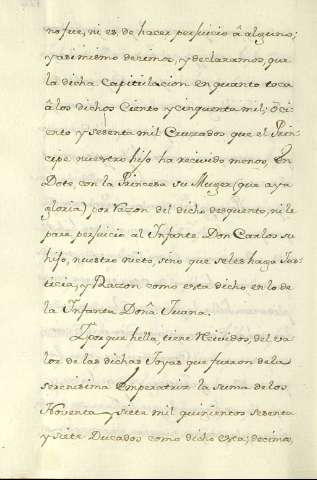 no fue, ni es de hacer perjuicio â alguno;
y asimismo decimos, y declaramos, que
la dicha Capitulacion en quanto toca
â los dichos Ciento y cinquenta mil; ô ci
ento y sesenta mil Cruzados que el Prin-
cipe nuestro hijo ha recivido menos, En
Dote, con la Princesa su Muger (que aya
gloria) por razon del dicho desquento, ni le
pare perjuicio al Infante Don Carlos su
hijo, nuestro nieto, sino que se les haga Jus-
ticia, y Razon como esta dicho en lo de
la Infanta Doña Juana.
Y por que hella, tiene recividos, del va-
lor de las dichas Joyas que fueron de la
serenisima Emperatriz la suma de los
Noventa y siete mil quinientos sesenta
y siete Ducados como dicho esta; decimos,